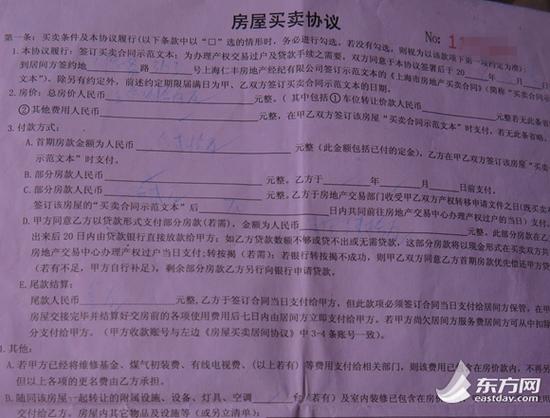 房屋买卖协议
No: 1
第一条：买卖条件及本协议履行(以下条款中以“□”选的情形时，务必进行勾选，若没有勾选，则视为以该款项下第一项约定为准)：
1.本协议履行：签订买卖合同示范文本：为办理产权交易过户及贷款手续之需要，双方同意于本协议签署后于20 年
到居间方签约地 路 号上海仁丰房地产经纪有限公司签订示范文本的《上海市房地产买卖合同》(简称“买卖合同示
范文本”)。除另有约定外，前述约定期限届满日为甲、乙双方签订买卖合同示范文本的日期。
2.房价：总房价人民币 元整。（其中包括①车位转让价款人民币
②其他费用人民币 元整，在甲乙双方签订该房屋“买卖合同示范文本”时支付，若无此条省略
3.付款方式：
A.首期房款金额为人民币 元整（此金额包括已付的定金），乙方在甲乙双方签订该房屋“买
示范文本”时支付。
B.部分房款人民币 元整，乙方于 年 月 日前支付。
C.部分房款人民币 元整，乙方于房地产交易部门收受甲乙双方产权转移申请文件之日(既买
签订该房屋的“买卖合同示范文本”后 日内共同前往房地产交易中心办理产权过户的当日)支付
D.甲方同意乙方以贷款形式支付部分房款(若需)，金额为人民币 元整，此部分房款在乙
出来后20日内由贷款银行直接放款给甲方；如乙方贷款数额不够或贷不出或无需贷款，这部分房款将以现金形式在买卖双方共
房地产交易中心办理产权过户当日支付;转按揭（若需）；若银行转按揭不成功，则甲乙双方同意乙方首期房款优先偿还甲方贷
（若有不足，甲方自行补足），剩余部分房款乙方另行向银行申请贷款。
E.尾款结算：
尾款人民币 元整，乙方于签订合同当日支付给甲方，但此款项必须签订合同当日支付给居间方保管，在甲
房屋交接完毕并结算好交房前的各项使用费用后七日内由居间方转交支付给甲方。若甲方尚欠居间方服务费居间方可从中扣除
分支付给甲方。（甲方收款账号与左边《房屋买卖居间协议》中3-4条账号一致）。
其他：
A.若甲方已经将维修基金、煤气初装费、有线电视费、（以上若有）等费用支付给相关部门，则该费用已 在房价内，不再另
但以上各项的更名费由乙方承担。
B.随同该房屋一起转让的附属设施、设备、灯具、空调 台（若有）及室内装修已包含在房
交付给乙方。房屋内其它物品及设施等（或另立清单）：
东方网
eastday.com